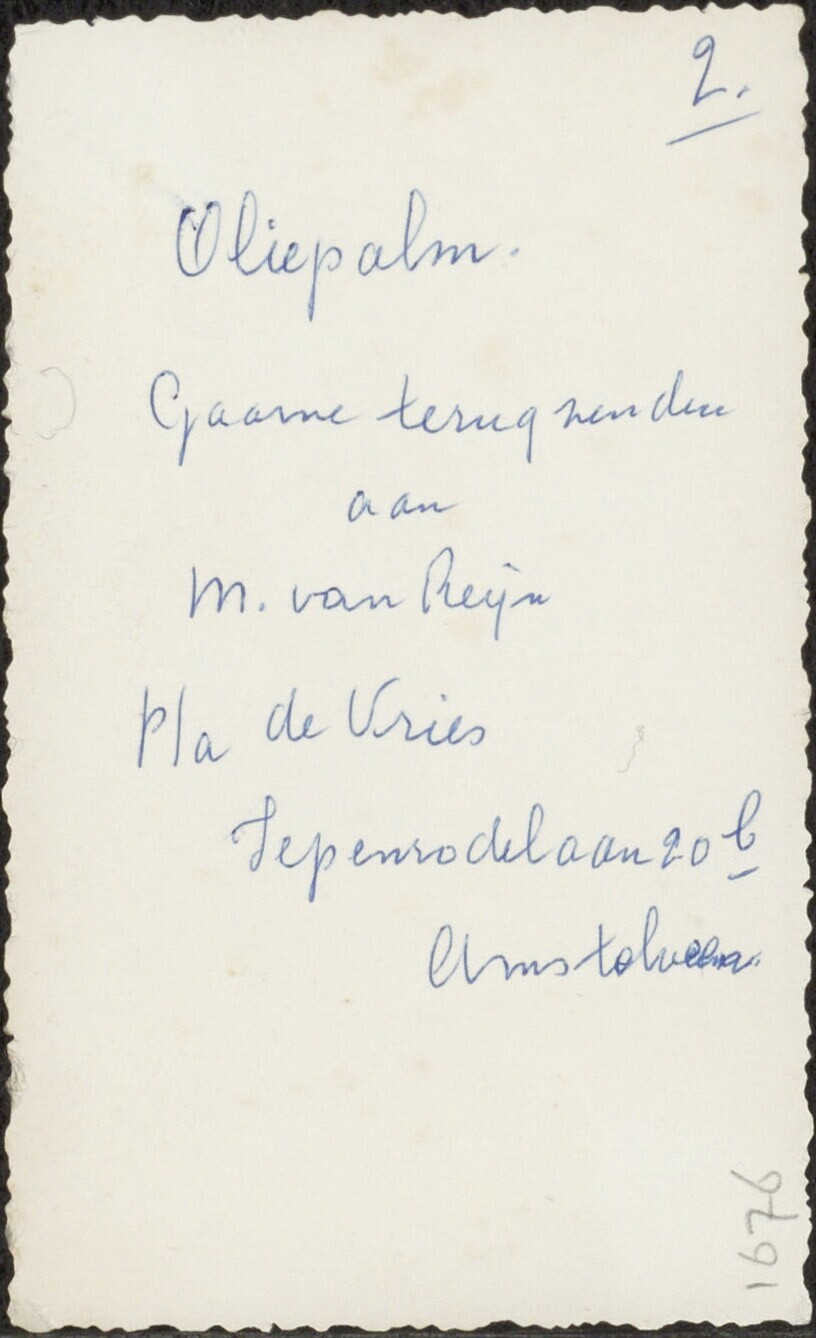 2.
Oliepalm.
Gaarne terugzenden
aan
M. van Reijn
P/a de Vries
Iepenrodelaan 20 b
Amstelveen.
1676